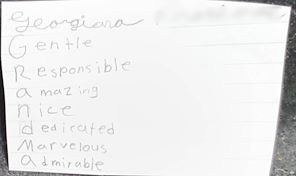 Georgiana
Gentle
Responsible
amazing
nice
dedicated
Marvelous
admirable